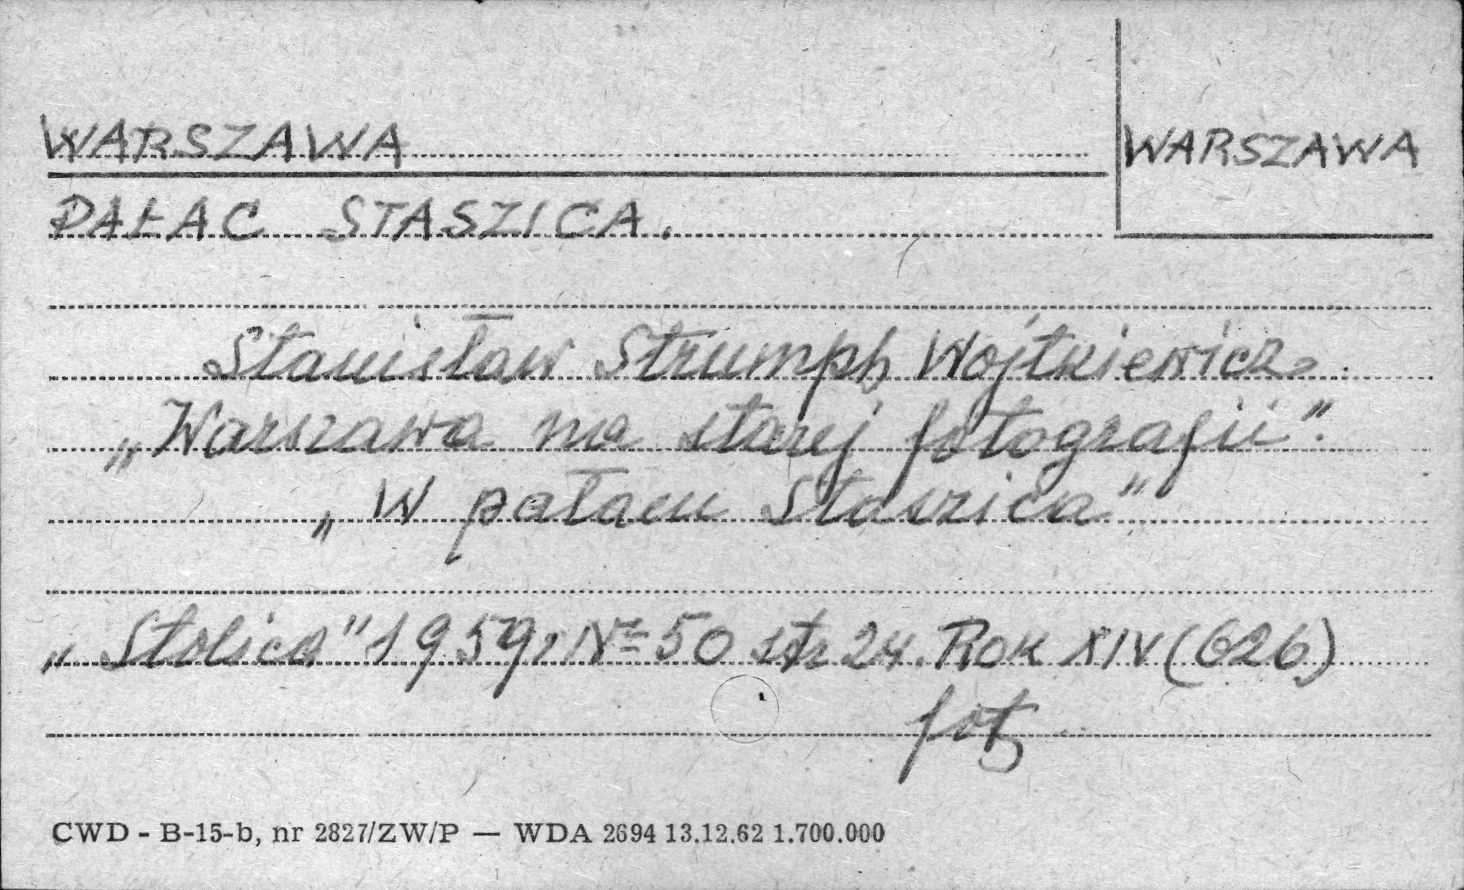 WARSZAWA
WARSZAWA
PAŁAC STASZICA.
Stanisław Strumph Wojtkiewicz.
„Warszawa na starej fotografii".
„W pałacu Staszica"
„Stolica" 1959, № 50 str 24. Rok XIV (626)
fot
CWD - B-15-b, nr 2827/ZW/P — WDA 2694 13.12.62 1.700.000